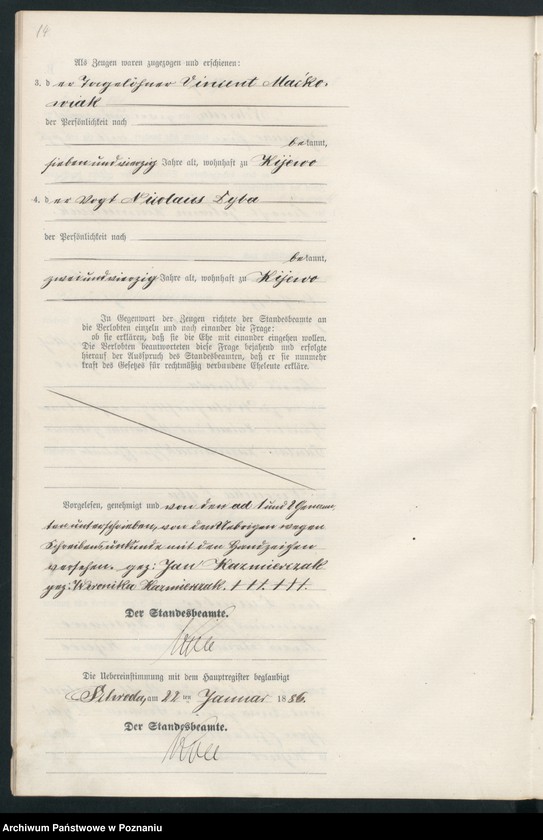 14
Als Zeugen waren zugezogen und erschienen:
3. der Tagelöhner Vincent Maćko-
wiak
der Persönlichkeit nach
bekannt,
siebenundvierzig Jahre alt, wohnhaft zu Kijewo
4. der Vogt Nicolaus Zyba
der Persönlichkeit nach
bekannt,
zweiundvierzig Jahre alt, wohnhaft zu Kijewo
In Gegenwart der Zeugen richtete der Standesbeamte an
die Verlobten einzeln und nach einander die Frage:
ob sie erklären, daß sie die Ehe mit einander eingehen wollen.
Die Verlobten beantworteten diese Frage bejahend und erfolgte
hierauf der Ausspruch des Standesbeamten, daß er sie nunmehr
kraft des Gesetzes für rechtmäßig verbundene Eheleute erkläre.
Vorgelesen, genehmigt und von den ad 1 und 2 Genann-
ten unterschrieben, von den Uebrigen wegen
Schreibensunkunde mit den Handzeichen
versehen. gez: Jan Kazmierczak
gez: Weronika Kazmierczak. † † †. † † †.
Der Standesbeamte.
Die Uebereinstimmung mit dem Hauptregister beglaubigt
Schroda, am 22 ten Januar 1886.
Der Standesbeamte.
Archiwum Państwowe w Poznaniu